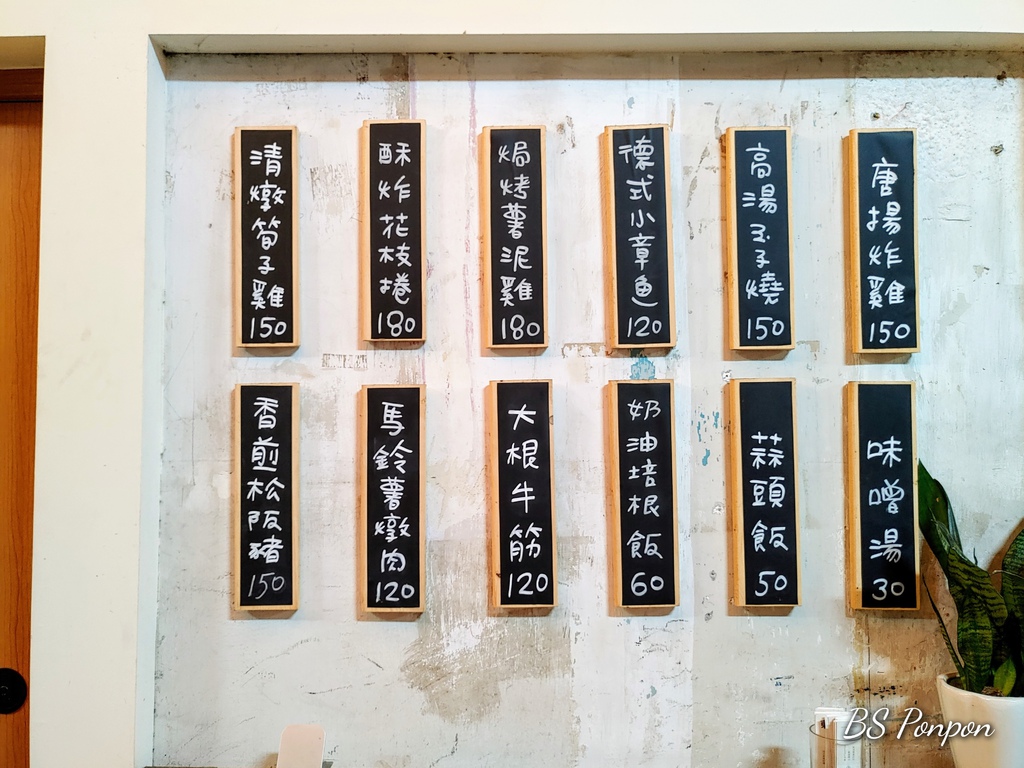 清燉筍子雞
150
酥炸花枝捲
180
焗烤薯泥雞
180
德式小章魚
120
高湯玉子燒
150
唐揚炸雞
150
香煎松阪豬
150
馬鈴薯燉肉
120
大根牛筋
120
奶油培根飯
60
蒜頭飯
50
味噌湯
30
BS Ponpon